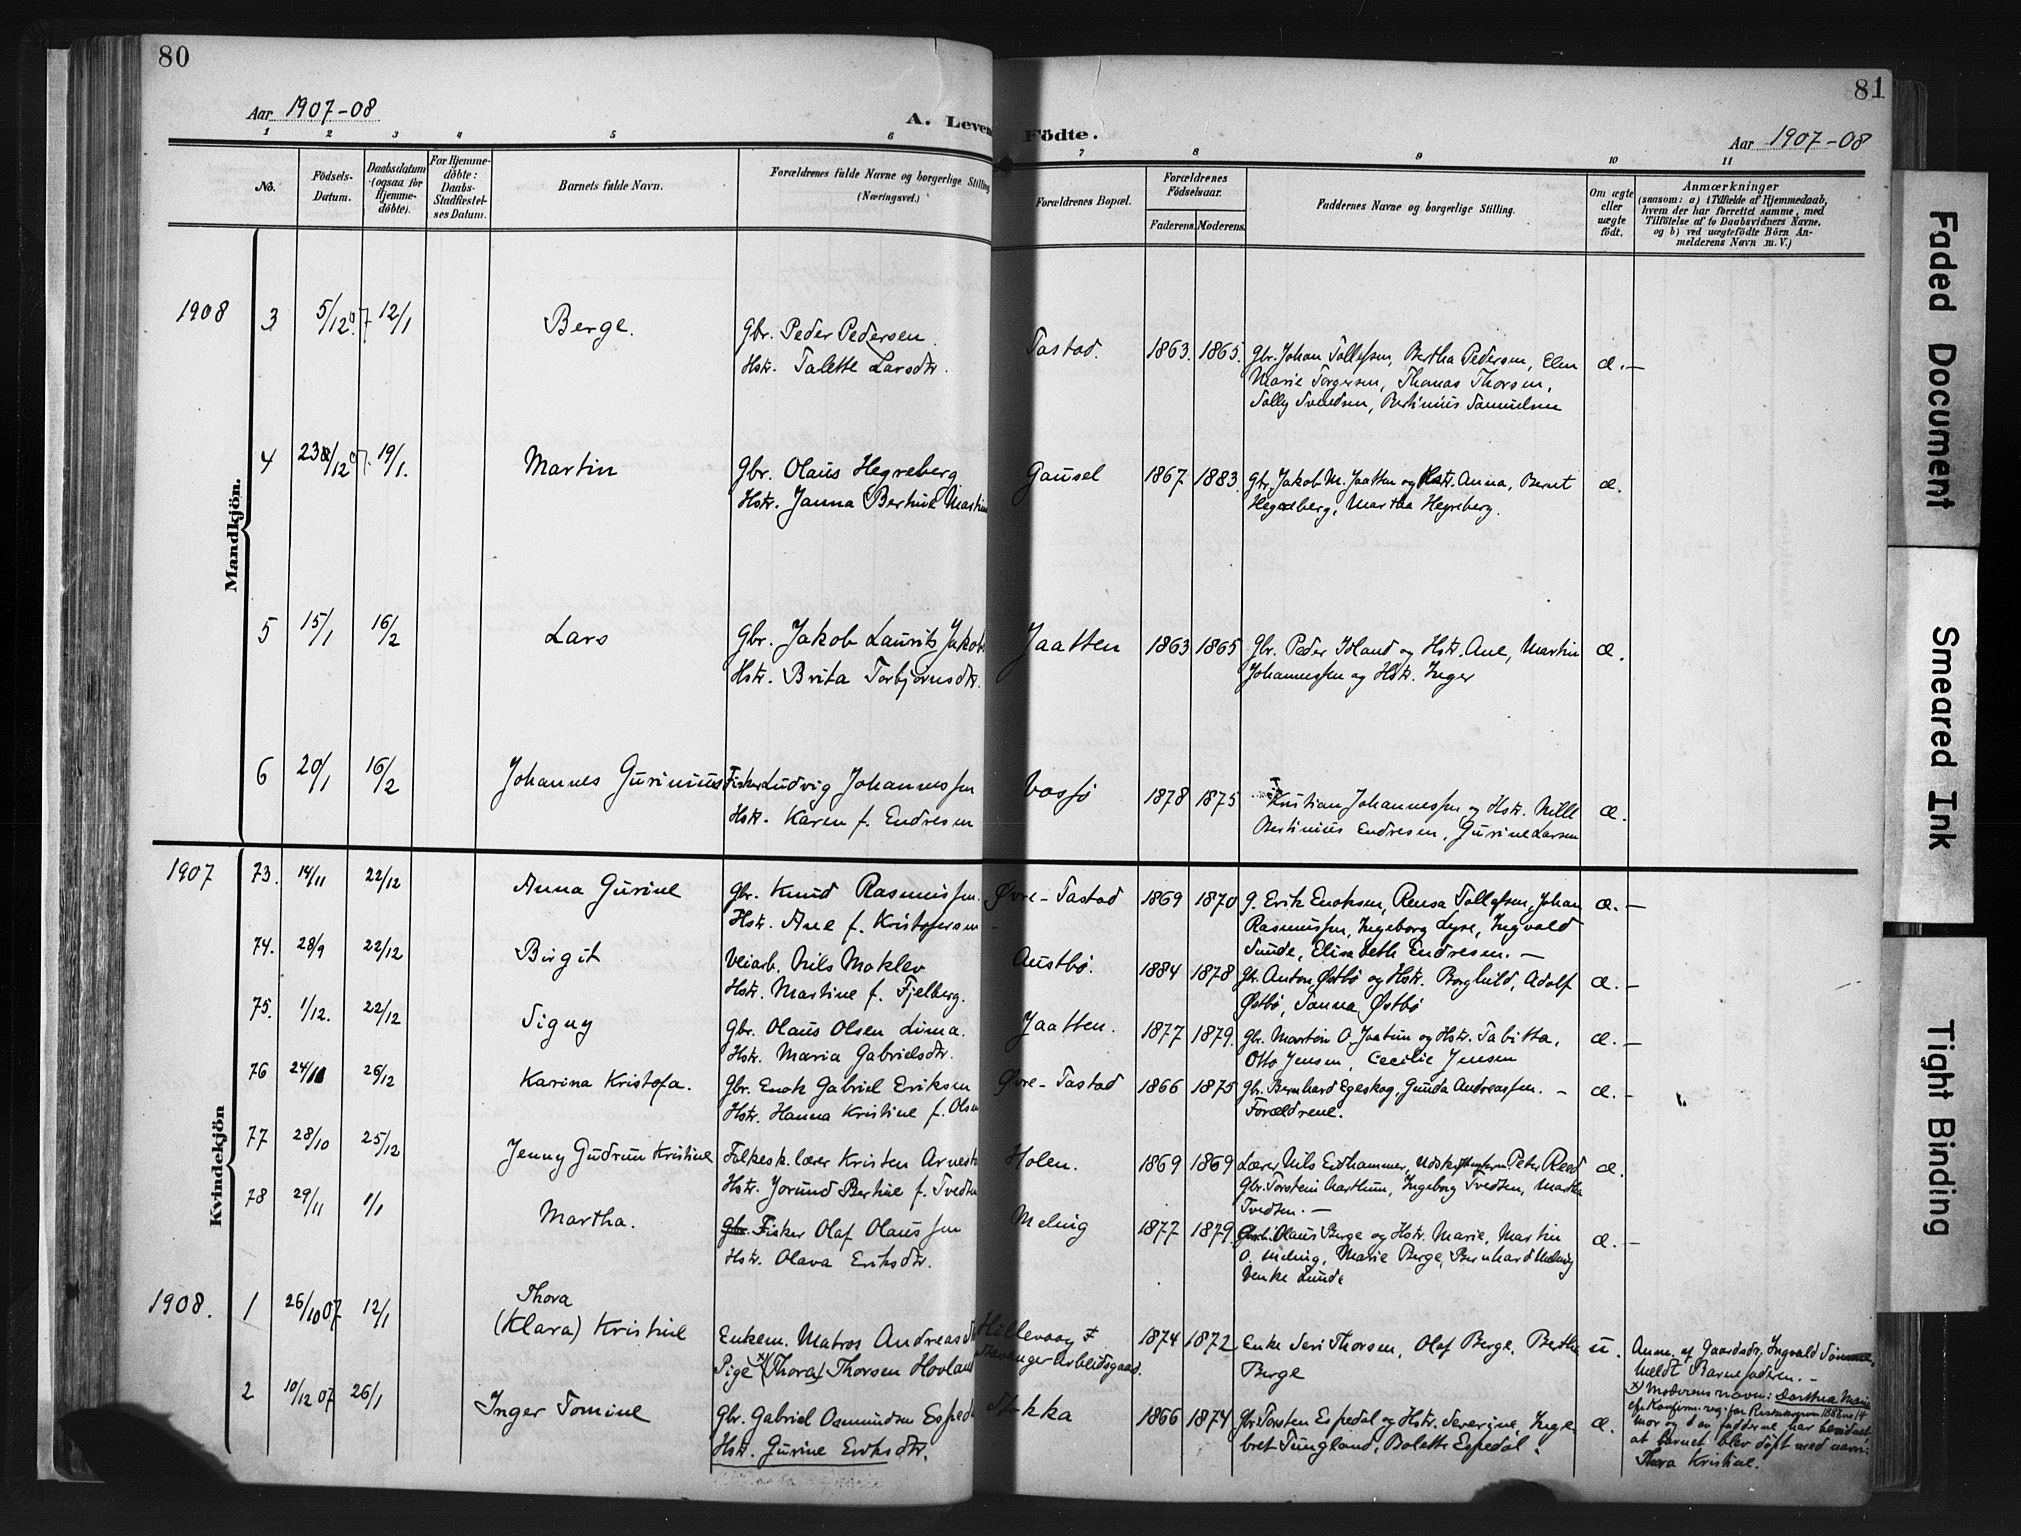 80
81
Aar 1907-08
A. Leven
Födte.
Aar 1907-08
1 2 3 4 5 6 7 8 9 10 11
No.
Födsels-
Datum.
Daabsdatum
(ogsaa for
Hjemme-
döbte).
For Hjemme-
döbte:
Daabs-
Stadfæstel-
ses Datum.
Barnets fulde Navn.
Forældrenes fulde Navne og borgerlige Stilling
(Næringsvei.)
Forældrenes Bopæl.
Forældrenes
Födselsaar.
Faderens. Moderens.
Faddernes Navne og borgerlige Stilling.
Om ægte
eller
uægte
födt.
Anmærkninger
(saasom: a) i Tilfælde af Hjemmedaab,
hvem der har forrettet samme, med
Tilföielse af to Daabsvidners Navne.
og b) ved uægtefödte Börn An-
melderens Navn m. V.)
Mandkjön.
1908 3 5/12 07 12/1 Berge. Gbr. Peder Pedersen. Tastad. 1863. 1865. Gbr. Johan Tollefsen, Bertha Pedersen, Elen æ.—
Hstr. Talette Larsdtr. Marie Torgersen, Thomas Thorsen,
Tolly Svendsen, Bertinius Samuelsen
4 23/12 07. 19/1. Martin Gbr. Olaus Hegreberg Gausel 1867 1883 Gbr. Jakob M. Jaatten og Hstr. Anna, Bernt æ.
Hstr. Janna Bertine Martin Hegreberg, Martha Hegreberg.
5 15/1 16/2 Lars Gbr. Jakob Laurits Jakob Jaatten 1863 1865 Gbr. Peder Island og Hstr. Ane, Martin æ.
Hstr. Brita Torbjørnsdtr. Johannessen og Hstr. Inger
6 20/1 16/2 Johannes Gurinius Fisker Ludvig Johannessen Vassø 1878 1875 Kristian Johannessen og Hstr. Nille æ.
Hstr. Karen f. Endresen Bertinius Endresen, Gurine Larsen
Kvindekjön
1907 73. 14/11 22/12 Anna Gurine Gbr. Knud Rasmussen. Øvre-Tastad 1869 1870 G. Erik Enoksen, Rensa Tollefsen, Johan æ.—
Hstr. Ane f. Kristofersen Rasmussen, Ingeborg Lyse, Ingvald
Sunde, Elisabeth Endresen.—
74. 28/9 22/12 Birgit Veiarb. Nils Moklev Austbø. 1884 1878 Gbr. Anton Østbø og Hstr. Borghild, Adolf æ.—
Hstr. Martine f. Fjelberg. Østbø, Sanna Østbø
75. 1/12. 22/12 Signy Gbr. Olaus Olsen Lima. Jaatten. 1877 1879. Gbr. Martin O. Jaatun og Hstr. Tabitta, æ.—
Hstr. Maria Gabrielsdtr. Otto Jensen, Cecilie Jensen
76 24/11 26/12 Karina Kristofa. Gbr. Enok Gabriel Eriksen Øvre-Tastad 1866 1875 Gbr. Bernhard Egeskog, Gunda Andreassen. — æ.—
Hstr. Hanna Kristine f. Olsen Forældrene.
77 28/10 25/12 Jenny Gudrun Kristine Folkesk. lærer Kristen Arnest Holen. 1869 1869 Lærer Nils Eidhammer, Peter Reed æ.
Hstr. Jorund Bertine f. Tvedten Gbr. Torstein Aarthun, Ingeborg Tvedten, Martha
Tvedten.—
78 29/11 1/1 Martha. Gbr. Fisker Olaf Olaussen Meling 1877 1879. Olaus Berge og Hstr. Marie, Martin æ.—
Hstr. Olava Eriksdtr. O. Meling, Marie Berge, Bernhard Meling
Venke Lunde
1908. 1 26/10 07 12/1 Thora
(Klara) Kristine Enkem. Matros Andreas Hillevaag F 1874 1872 Enke Seri Thorsen, Olaf Berge, Berthe u. Anm. af Gaardsdr. Ingvald
Pige x) (Thora) Thorsen Hovland Stavanger Arbeidsgaard. Berge Meldt Barnefaderen.—
x) Moderens navn: Dorthea Marie
2 10/12 07 26/1 Inger Tomine Gbr. Gabriel Osmundsen Espedal Stokka 1866 1874 Gbr. Torsten Espedal og Hstr. Severine, Inge- æ.
Hstr. Gurine Eriksdtr. bret Tungland, Bolette Espedal.
mor og 2 av fadderne har bevidnet
at barnet blev døpt med navn:
Thora Kristine.
Faded Document
Smeared Ink
Tight Binding